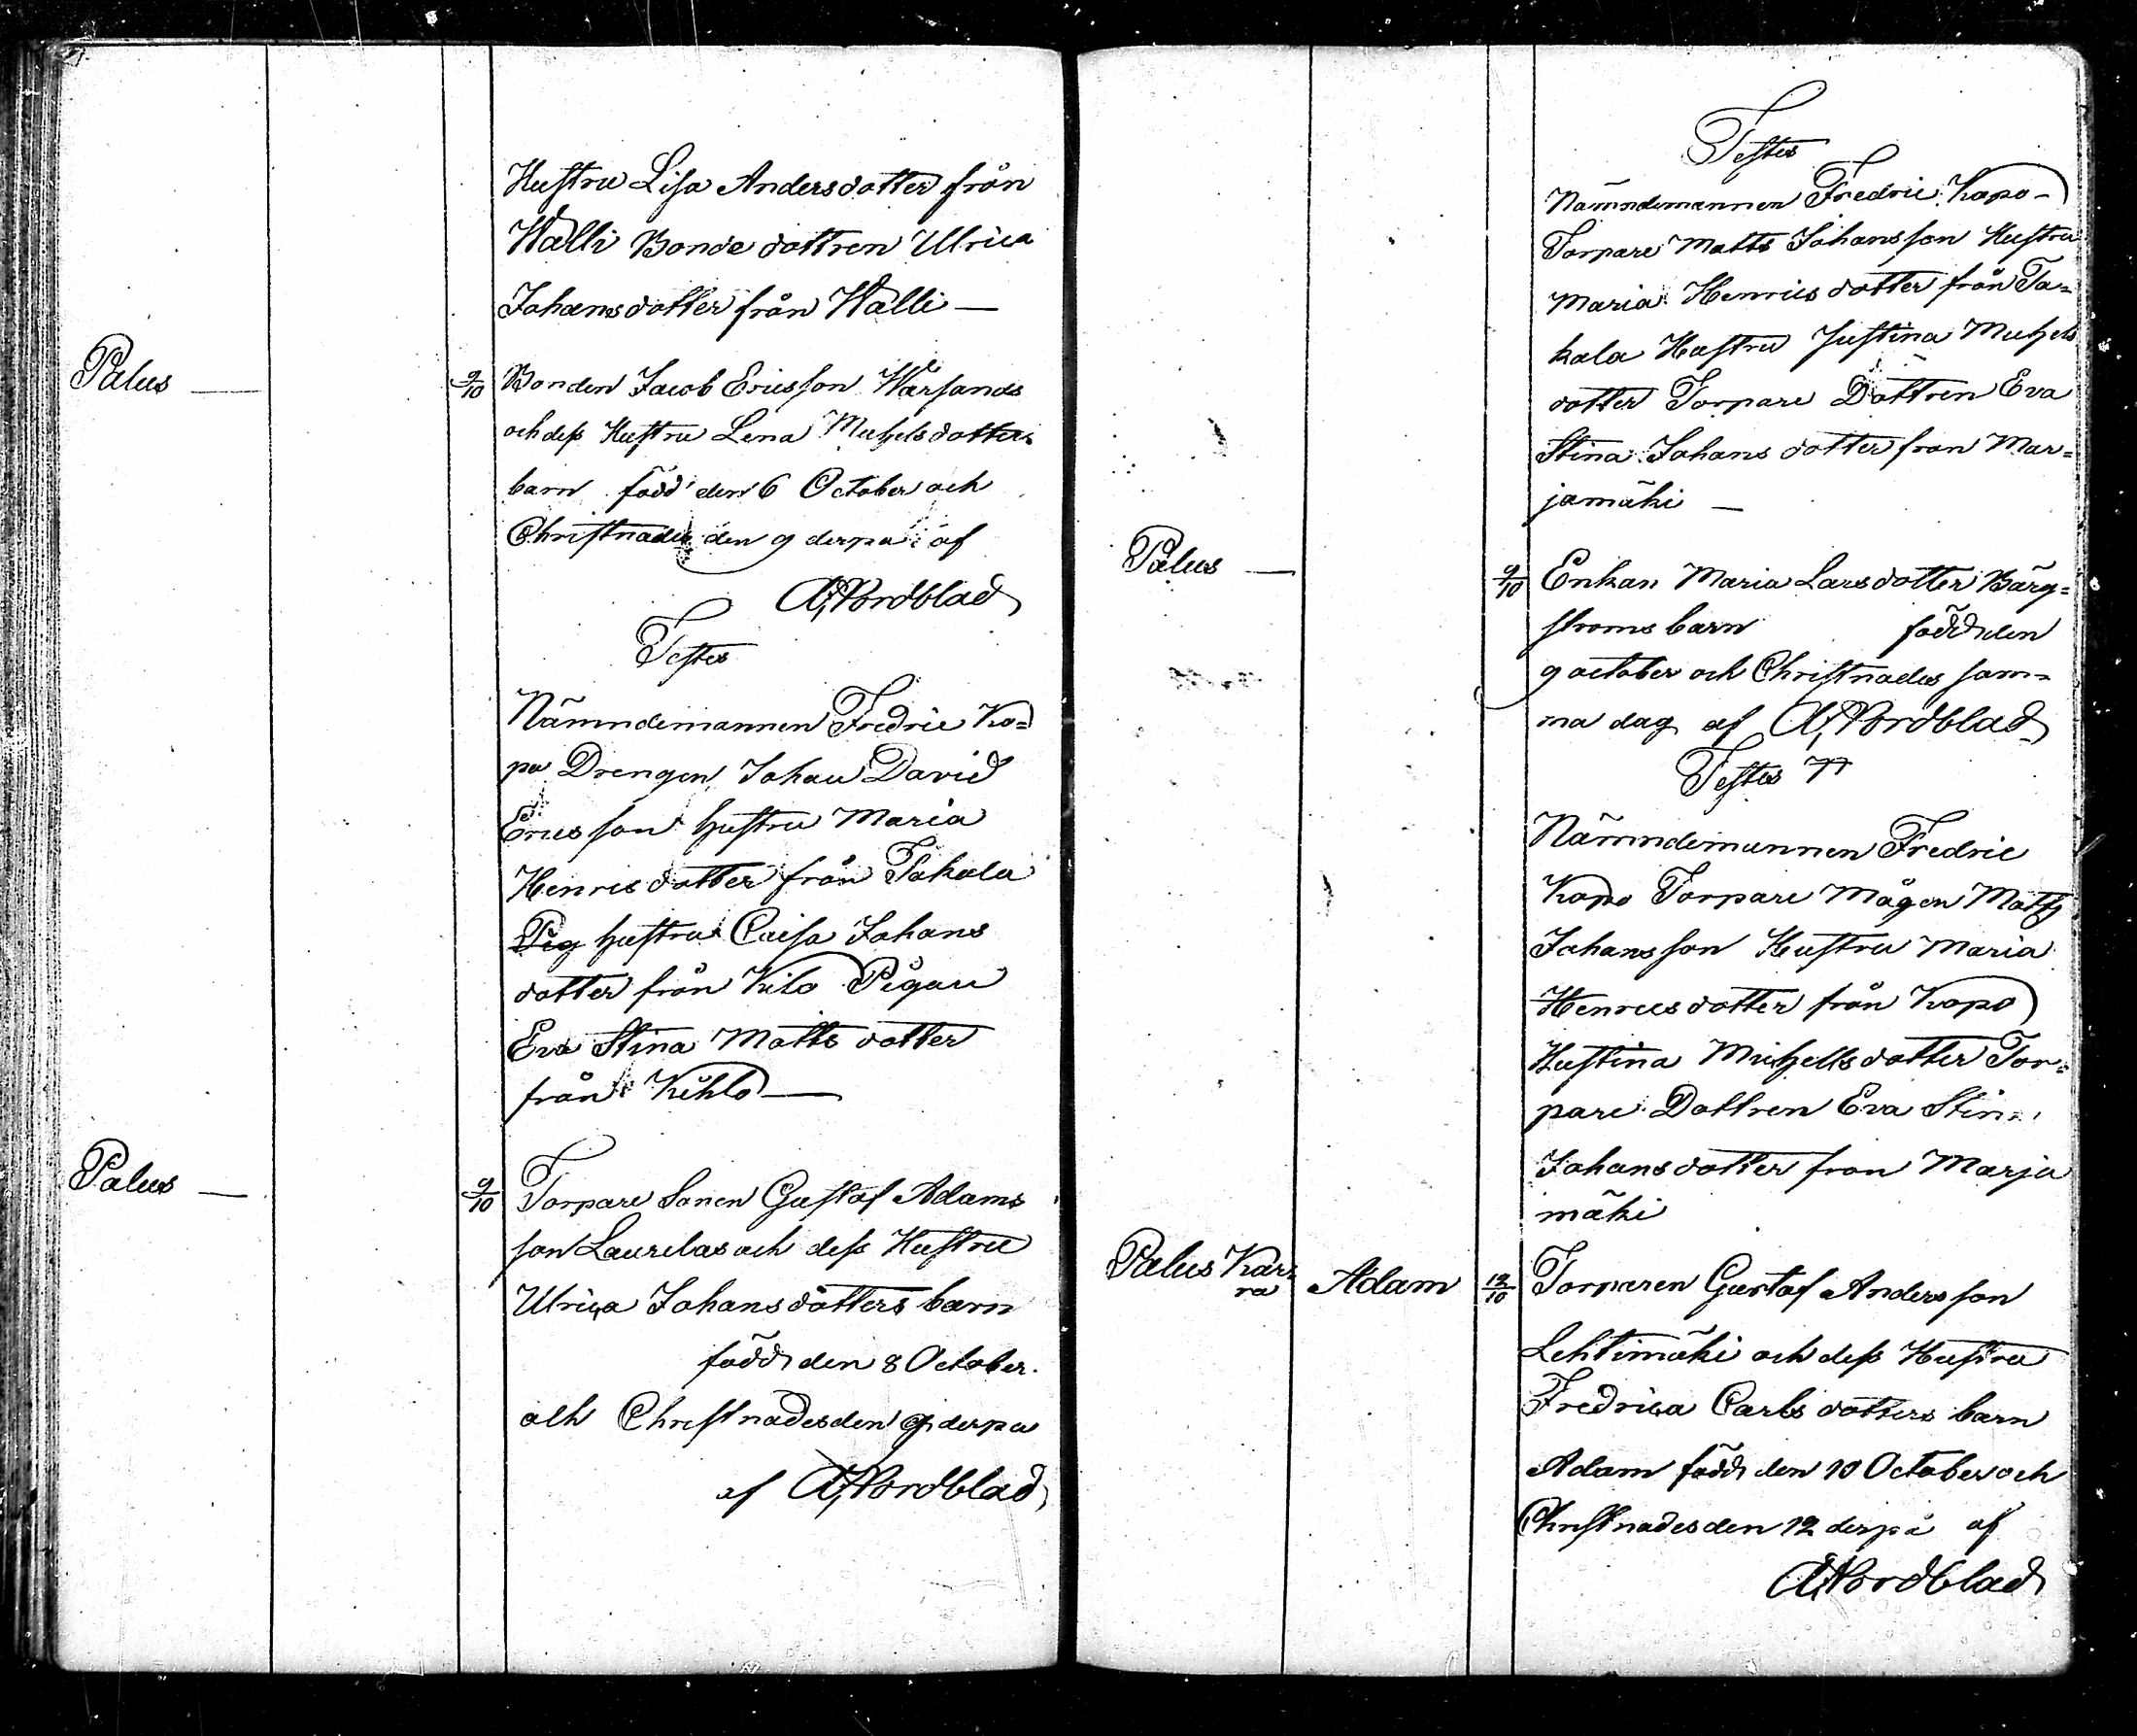 Hustru Lisa Andersdotter från
Wälli Bonde dottren Ulrica
Johansdotter från Wälli —
Palus —
9/10 Bonden Jacob Ericsson Warsands
och dess Hustru Lena Michelsdotters
barn född den 6 October och
Christnades den 9 derpå af
A, Nordblad
Testes
Nämndemannen Fredric Ko=
po Drengen Johan David
Ericsson hustru Maria
Henricsdotter från Takala
Pig hustru Caisa Johans
dotter från Kilo Pigan
Eva Stina Matts dotter
från Kihlo —
Palus —
9/10 Torpare Sonen Gustaf Adams
son Laurilas och dess Hustru
Ulrica Johansdotters barn
född den 8 October
och Christnades den 9 derpa
af A, Nordblad
Testes
Nämndemannen Fredric Kopo —
Torpare Matts Johansson Hustru
Maria Henricsdotter från Ta=
kala Hustru Justina Michels
dotter Torpare Dottren Eva
Stina Johans dotter från Mar=
jamäki —
Palus —
9/10 Enkan Maria Larsdotter Bärg=
stroms barn född den
9 october och Christnades sam=
ma dag af A, Nordblad
Testes
Nämndemannen Fredric
Kopo Torpare Mågen Matts
Johansson Hustru Maria
Henricsdotter från Kopo
Hustina Michellsdotter Tor=
pare Dottren Eva Stin
Johansdotter fron Marja
mäki
Palus Kar=
ra Adam
12/10 Torparen Gustaf Andersson
Lehtimäki och dess Hustru
Fredrica Carls dotters barn
Adam född den 10 October och
Christnades den 12 derpå af
A, Nordblad